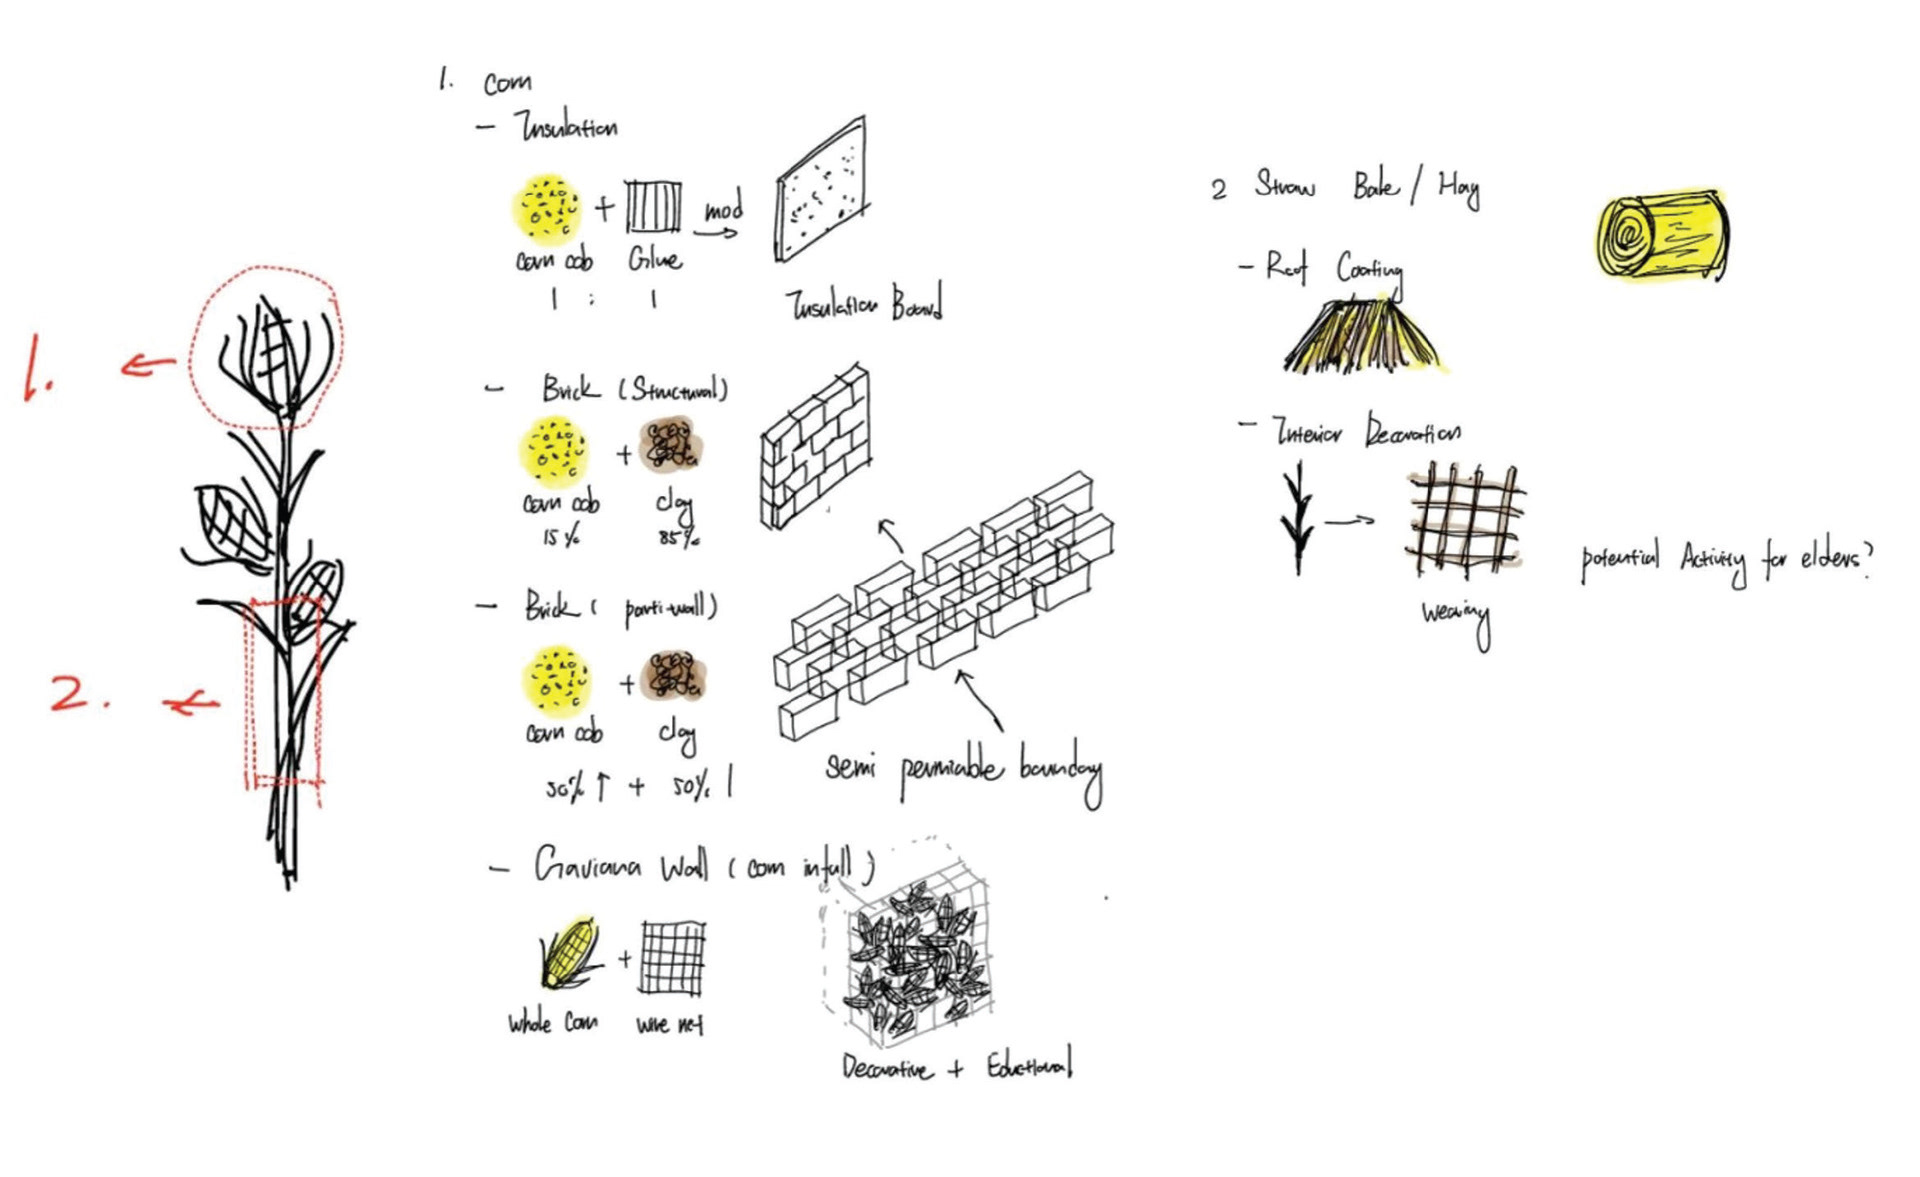 1.
2.
1. Corn
- Insulation
+ mod
corn cob Glue
1 : 1
Insulation Board
- Brick (Structural)
+
corn cob clay
15% 85%
- Brick (parti-wall)
+
corn cob clay
50% ↑ + 50% |
semi permiable boundary
- Gaviana Wall (corn infill)
+
Whole Corn wire net
Decorative + Eductional
2 Straw Bale / Hay
- Roof Coating
- Interior Decoration
Weaving
potential Activity for elders?